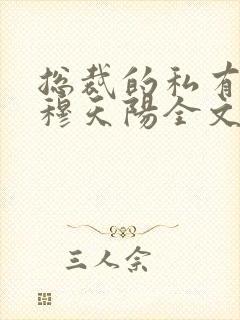 总裁的私有
穆天陽全文
三人余